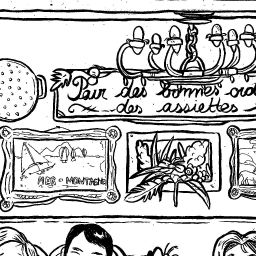 Pair des bonnes od
des assiettes
MER - MONTAGNE